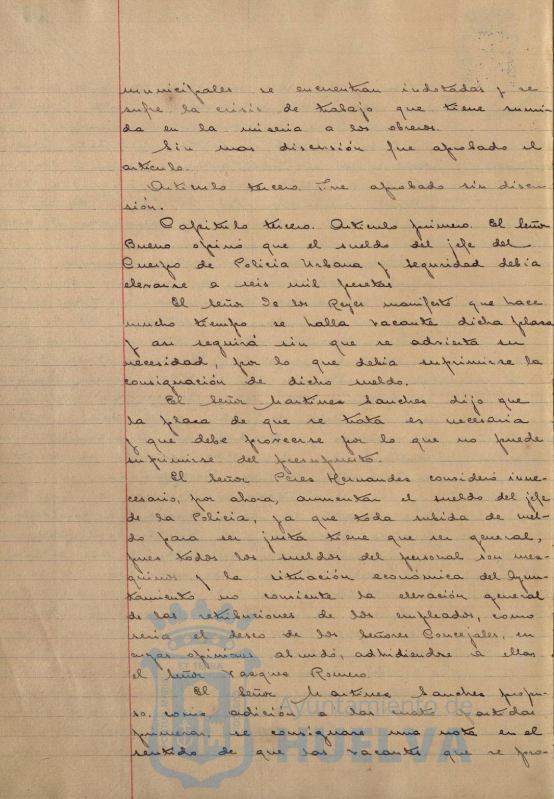 municipales se encuentran indotadas y se
sufre la crisis de trabajo que tiene sumi
da en la miseria a los obreros.
Sin mas discusión fue aprobado el
articulo.
Articulo tercero. Fue aprobado sin discu-
sión.
Capitulo tercero. Articulo primero. El Señor
Bueno opinó que el sueldo del jefe del
Cuerpo de Policia Urbana y seguridad debia
elevarse a seis mil pesetas
El Señor De los Reyes manifestó que hace
mucho tiempo se halla vacante dicha plaza
y asi seguirá sin que se advierta su
necesidad, por lo que debia suprimirse la
consignación de dicho sueldo.
El Señor Martinez Sanchez dijo que
la plaza de que se trata es necesaria
y que debe proveerse por lo que no puede
suprimirse del presupuesto.
El Señor Pérez Hernandez consideró inne-
cesario, por ahora, aumentar el sueldo del jefe
de la Policia, ya que toda subida de suel-
do para ser justa tiene que ser general,
pues todos los sueldos del personal son mez-
quinos y la situación económica del Ayun-
tamiento no consiente la elevación general
de las retribuciones de los empleados, como
seria el deseo de los Señores Concejales, en
cuyas opiniones abundó, adhiriendose a ellas
el Señor Vazquez Romero.
El Señor Martinez Sanchez propu-
so, como adición a las partidas
primeras, se consignare una nota en el
sentido de que las vacantes que se pro-
Ayuntamiento de
HUELVA